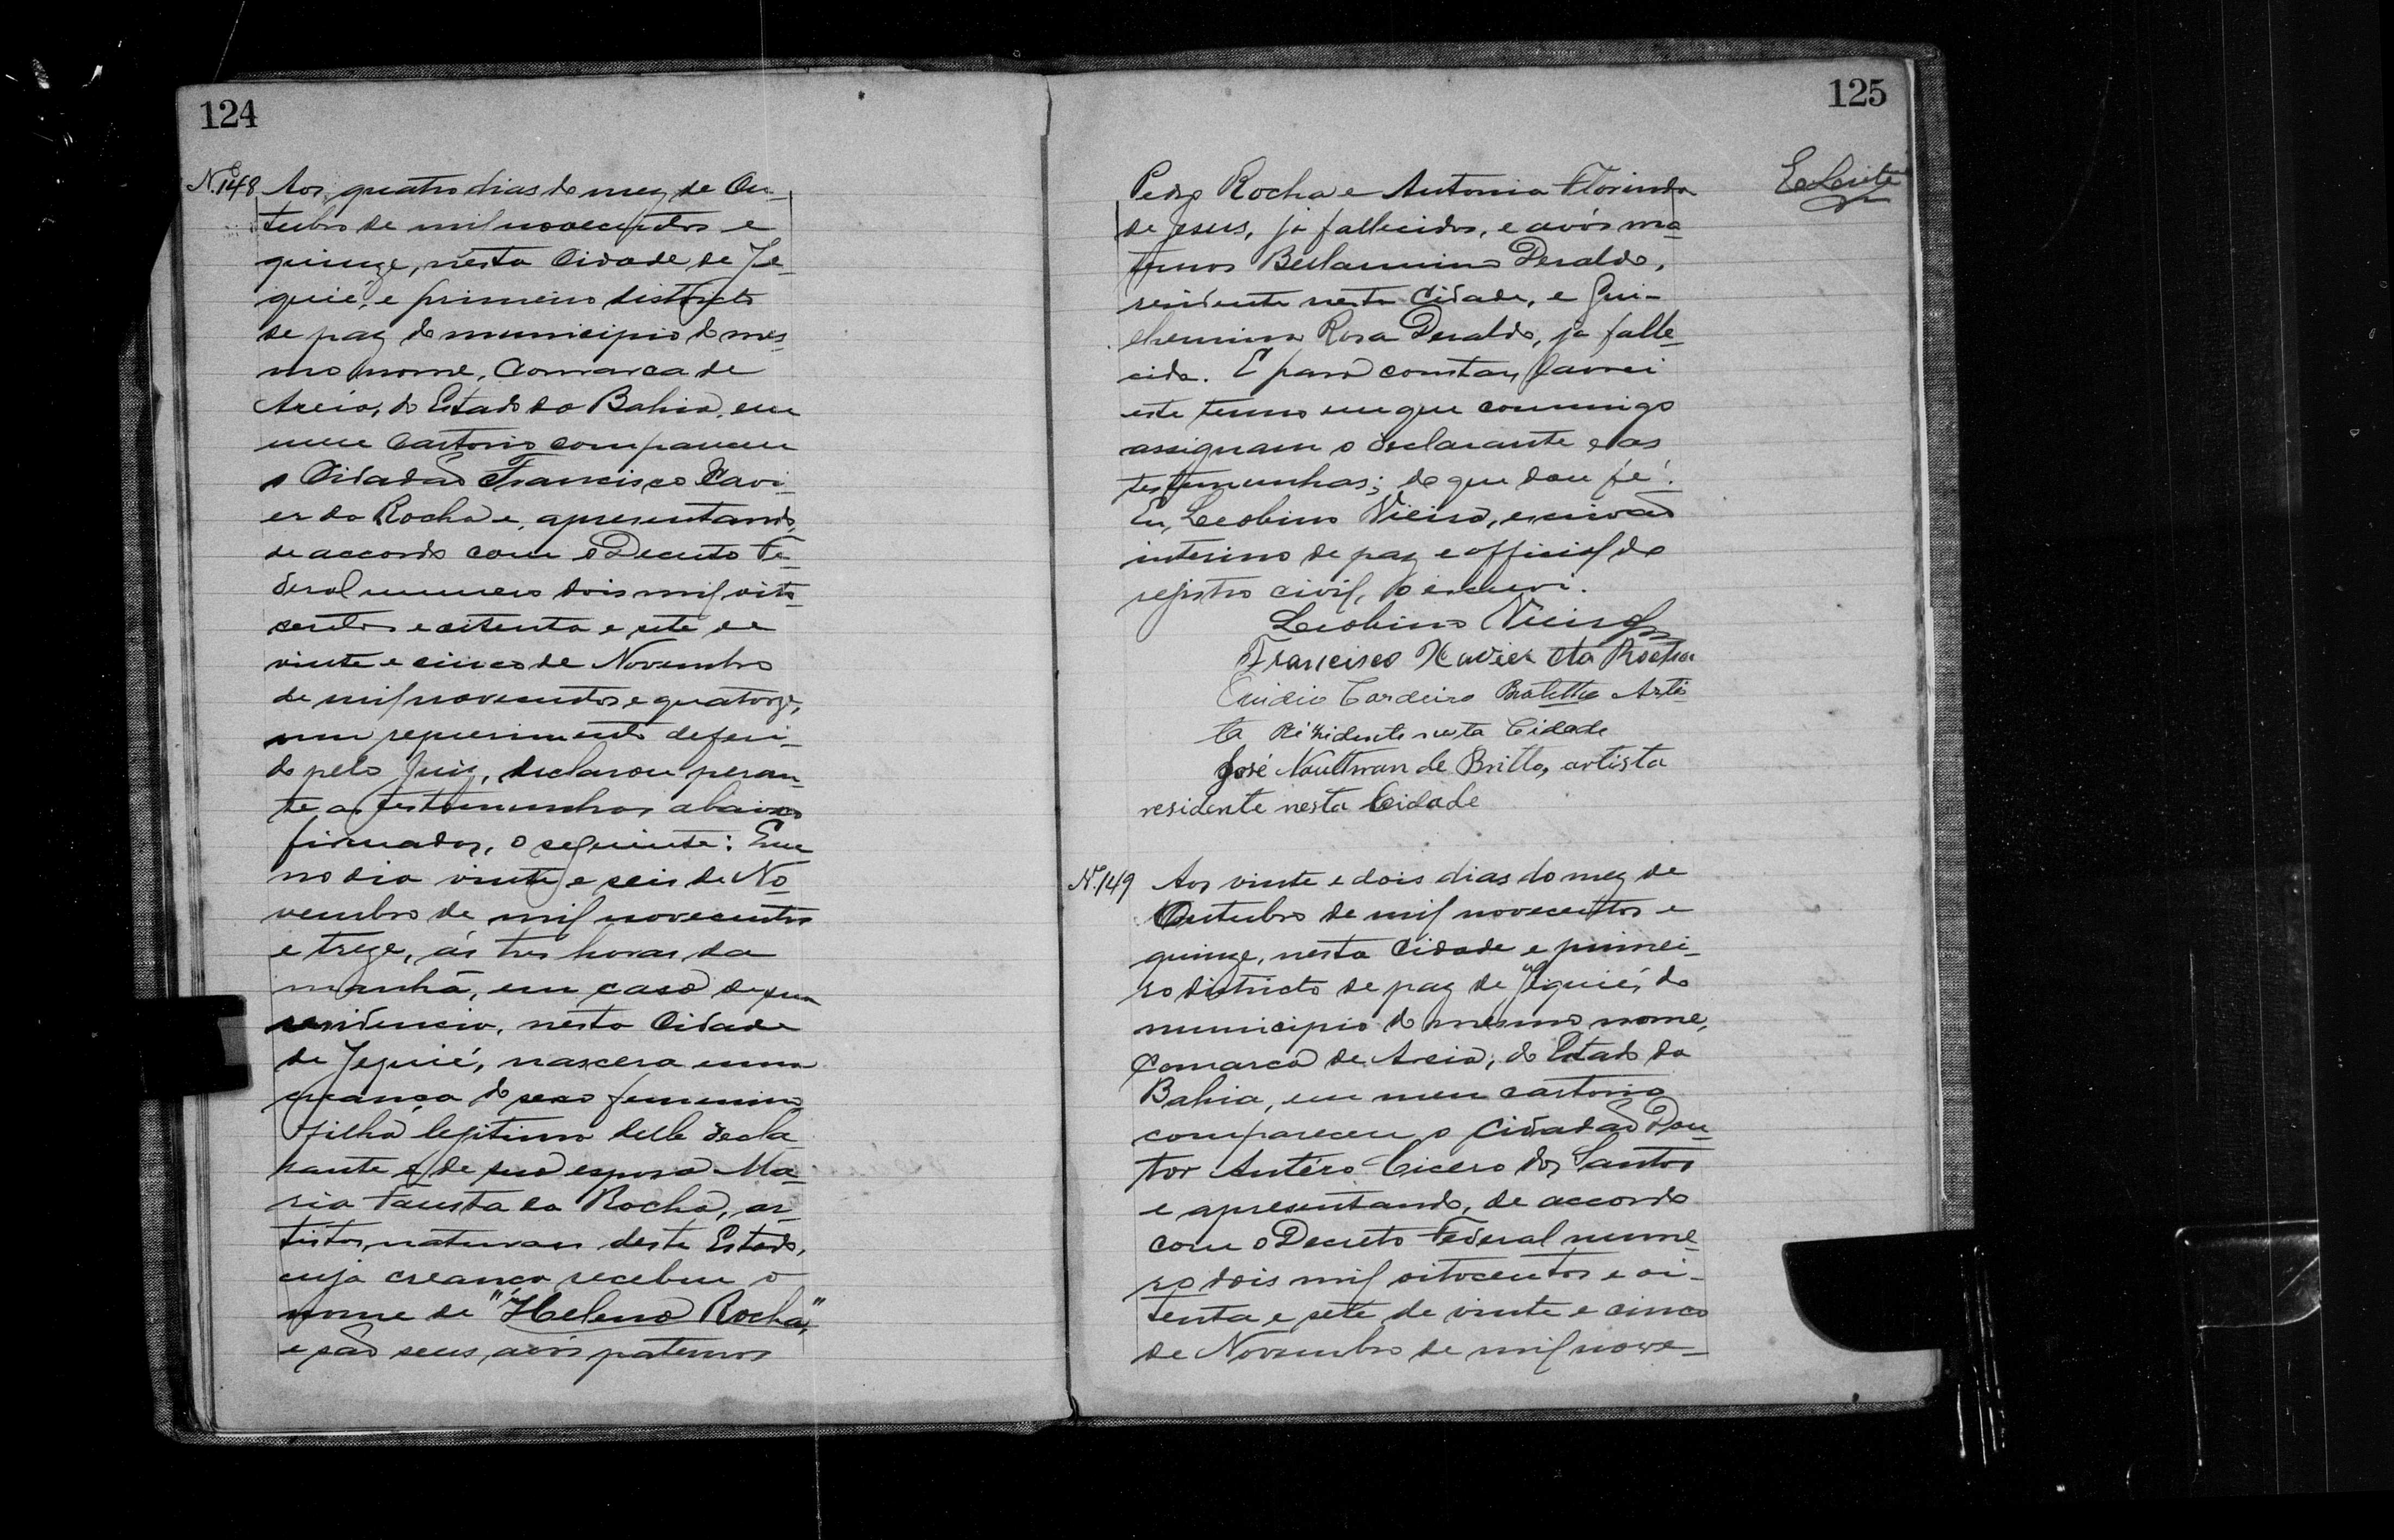 124
N. 148 Aos quatro dias do mez de Ou-
tubro de mil novecentos e
quinze, nesta Cidade de Je-
quié, e primeiro districto
de paz do municipio do mes-
mo nome, Comarca de
Areia, do Estado da Bahia, em
meu Cartorio compareceu
o Cidadão Francisco Xavi-
er da Rocha e, apresentando,
de accordo com o Decreto Fe-
deral numero dois mil oito-
centos e oitenta e sete de
vinte e cinco de Novembro
de mil novecentos e quatorze,
um requerimento deferi-
do pelo Juiz, declarou peran-
te as testemunhas abaixo
firmadas, o seguinte: Em
no dia vinte e seis de No-
vembro de mil novecentos
e treze, ás tres horas da
manhã, em casa de sua
residencia, nesta Cidade
de Jequié, nascera uma
creança do sexo femenino
filha legitima delle decla
rante e de sua esposa Ma-
ria Fausta da Rocha, ar-
tistas, naturaes deste Estado,
cuja creança recebeu o
nome de "Helena Rocha,"
e são seus avós paternos
125
Pedro Rocha e Antonia Florinda
de Jesus, já fallecidos, e avós ma-
ternos Bellarmino Deraldo,
residente nesta Cidade, e Gui-
lhermina Rosa Deraldo, já falle-
cida. E para constar, lavrei
este termo em que commigo
assignam o declarante e as
testemunhas; do que dou fé.
Eu, Leobino Vieira, escrivão
interino de paz e official do
registro civil, o escrevi.
Leobino Vieira
Francisco Xavier da Rocha
Cordeiro Artis
ta Rezidente nesta Cidade
José de Britto, artista
residente nesta Cidade
N. 149 Aos vinte e dois dias do mez de
Outubro de mil novecentos e
quinze, nesta Cidade e primei-
ro districto de paz de Jequié, do
municipio do mesmo nome,
Comarca de Areia, do Estado da
Bahia, em meu cartorio
compareceu o Cidadão Dou-
tor Antéro Cicero dos Santos
e apresentando, de accordo
com o Decreto Federal nume-
ro dois mil oitocentos e oi-
tenta e sete de vinte e cinco
de Novembro de mil nove-